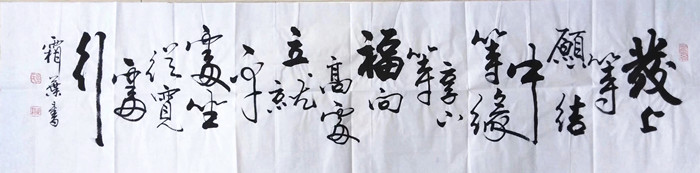 發上
等
願結
中
等緣
享下
等
福向
高處
立就
平
處坐
從寬
處
行
霜葉書